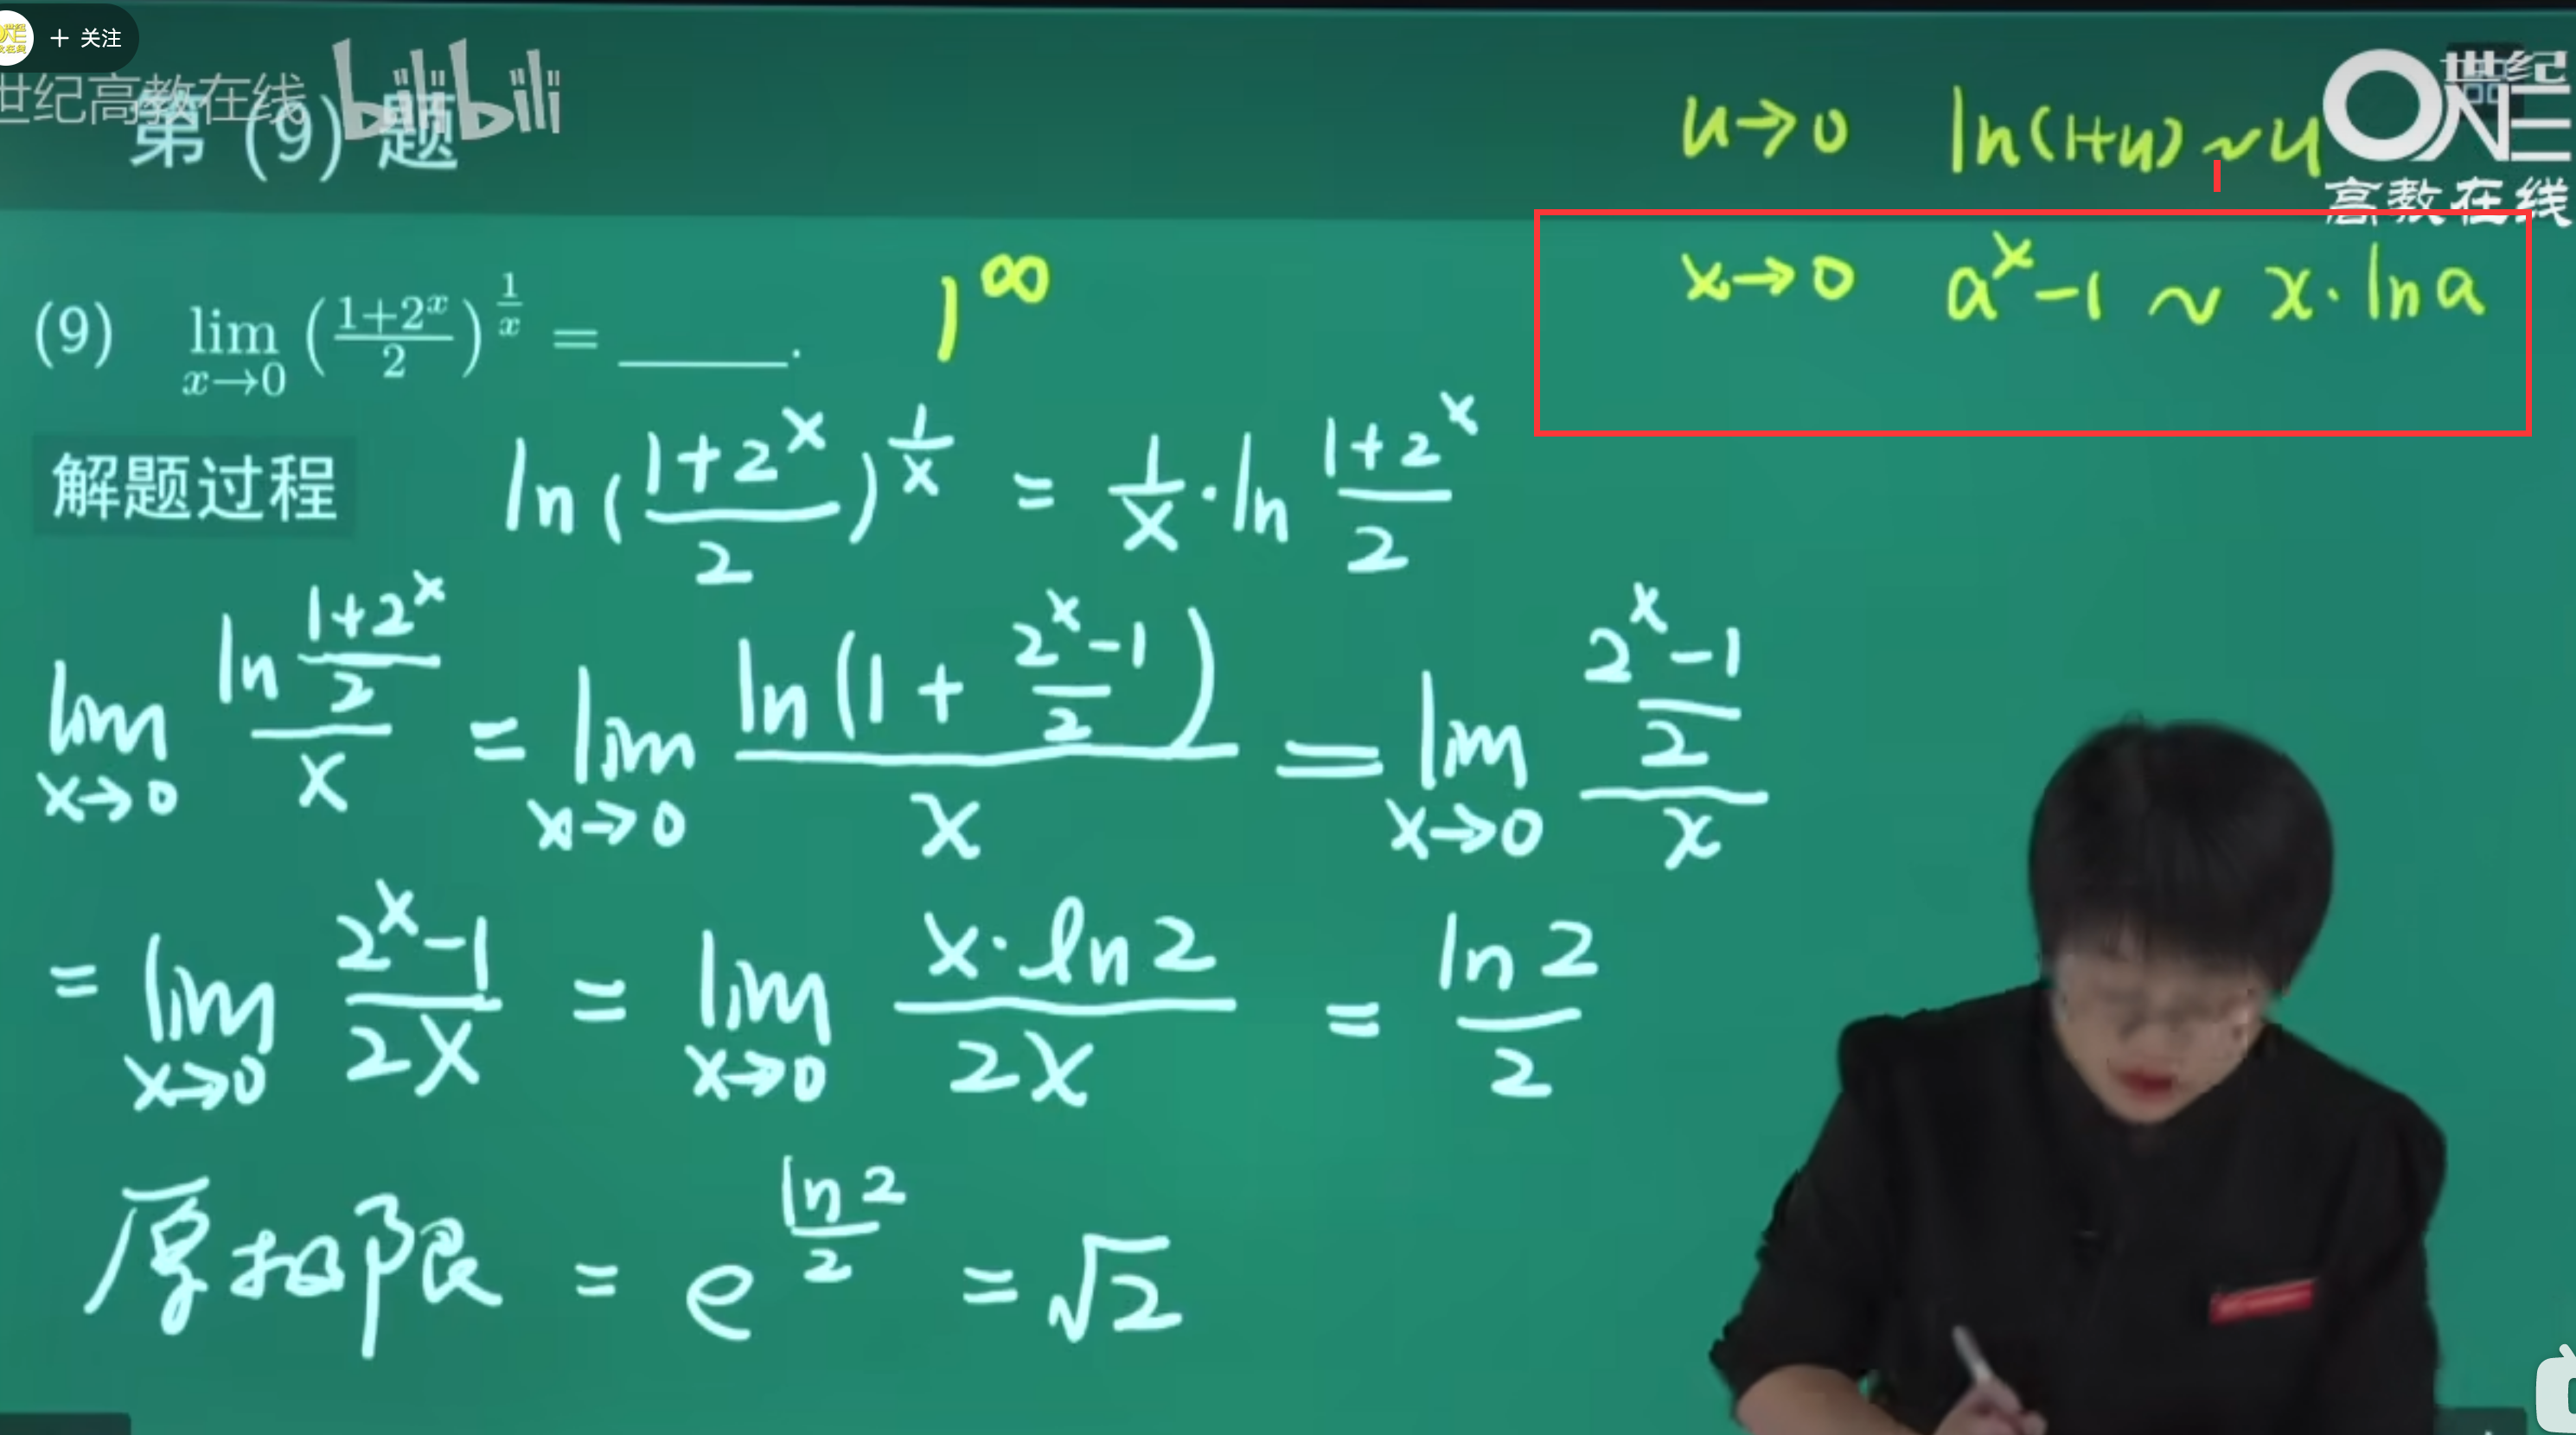 + 关注
世纪高教在线 bilibili
第 (9) 题
u→0 ln(1+u)~u
ONE 世纪
高教在线
x→0 a^x-1 ~ x·ln a
(9) lim_{x→0} (\frac{1+2^x}{2})^{\frac{1}{x}} = ____.
1^∞
解题过程
ln(\frac{1+2^x}{2})^{\frac{1}{x}} = \frac{1}{x}·ln \frac{1+2^x}{2}
lim_{x→0} \frac{ln \frac{1+2^x}{2}}{x} = lim_{x→0} \frac{ln(1+\frac{2^x-1}{2})}{x} = lim_{x→0} \frac{\frac{2^x-1}{2}}{x}
= lim_{x→0} \frac{2^x-1}{2x} = lim_{x→0} \frac{x·ln2}{2x} = \frac{ln2}{2}
原极限 = e^{\frac{ln2}{2}} = √2